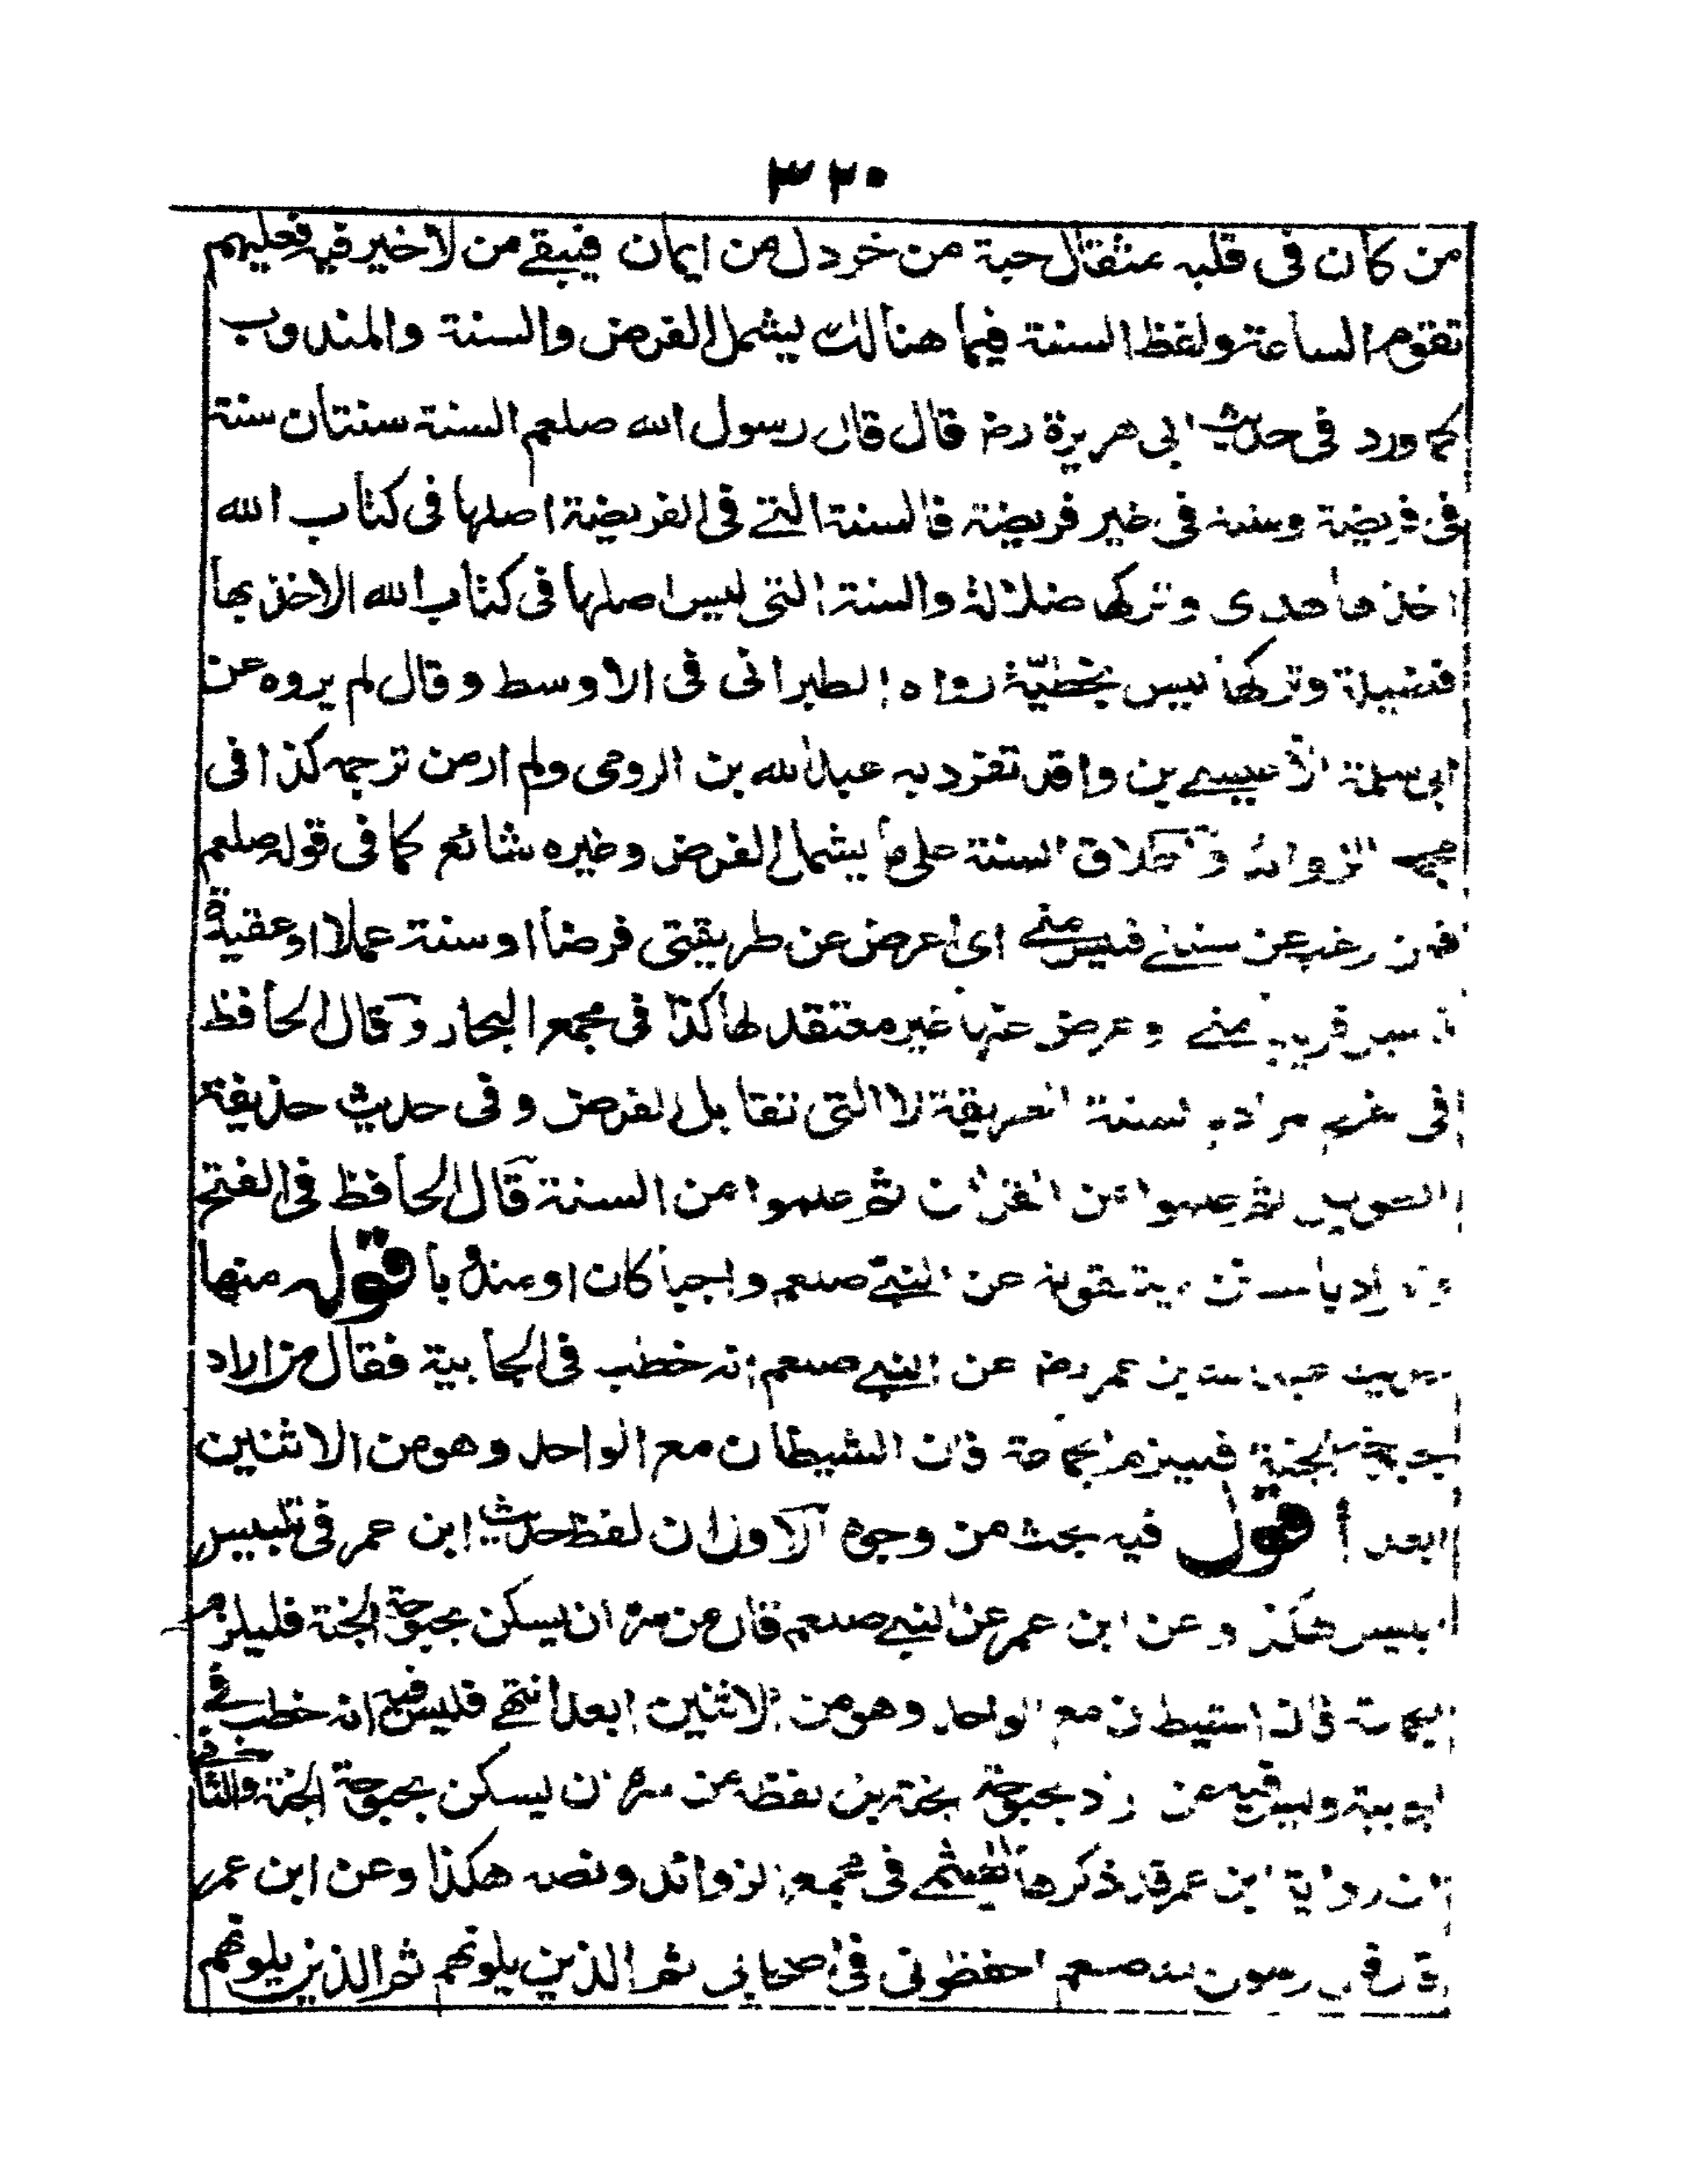 ٣٢٠
من كان فى قلبه مثقال حبة من خردل من ايمان فيبقے من لا خير فيه فعليهم
تقوم الساعة ولفظ السنة فيما هنالك يشمل الفرض والسنة والمندوب
كما ورد فى حديث ابى هريرة رض قال قال رسول الله صلعم السنة سنتان سنة
فى فريضة وسنة فى غير فريضة فالسنة التے فى الفريضة اصلها فى كتاب الله
اخذها هدى وتركها ضلالة والسنة التى ليس اصلها فى كتاب الله الاخذ بها
فضيلة وتركها ليس بخطيّة رواه الطبرانى فى الاوسط وقال لم يروه عن
ابى سلمة الا عيسے بن واقد تفرد به عبد الله بن الرومى ولم ار من ترجمه كذا فى
مجمع الزوائد و اطلاق السنة على ما يشمل الفرض وغيره شائع كما فى قوله صلعم
فمن رغب عن سنتے فليس منے اى اعرض عن طريقتى فرضا او سنة عملا او عقيدة
فليس منے وعرض عنها غير معتقد لها كذا فى مجمع البحار وقال الحافظ
فى المراد بالسنة الطريقة لا التى تقابل الفرض وفى حديث حذيفة
ثم علموا من القرآن ثم علموا من السنة قال الحافظ فى الفتح
يتلقونه عن النبے صلعم واجبا كان او مندوبا قوله منها
حديث عبد الله بن عمر رض عن النبے صلعم انه خطب فى الجابية فقال من اراد
بحبوحة الجنة فليلزم الجماعة فان الشيطان مع الواحد وهو من الاثنين
ابعد اقول فيه بحث من وجوه الاول ان لفظ حديث ابن عمر فى تلبيس
ابليس هكذا وعن ابن عمر عن النبے صلعم قال من سره ان يسكن بحبوحة الجنة فليلزم
الجماعة فان الشيطان مع الواحد وهو من الاثنين ابعد انتهے فليس فيه انه خطب فے
الجابية وليس فيه من اراد بحبوحة الجنة بل لفظه من سره ان يسكن بحبوحة الجنة والثانى
ان رواية ابن عمر قد ذكرها الهيثمے فى مجمع الزوائد ونصه هكذا وعن ابن عمر
قال قال رسول الله صلعم احفظونى فى اصحابى ثم الذين يلونهم ثم الذين يلونهم